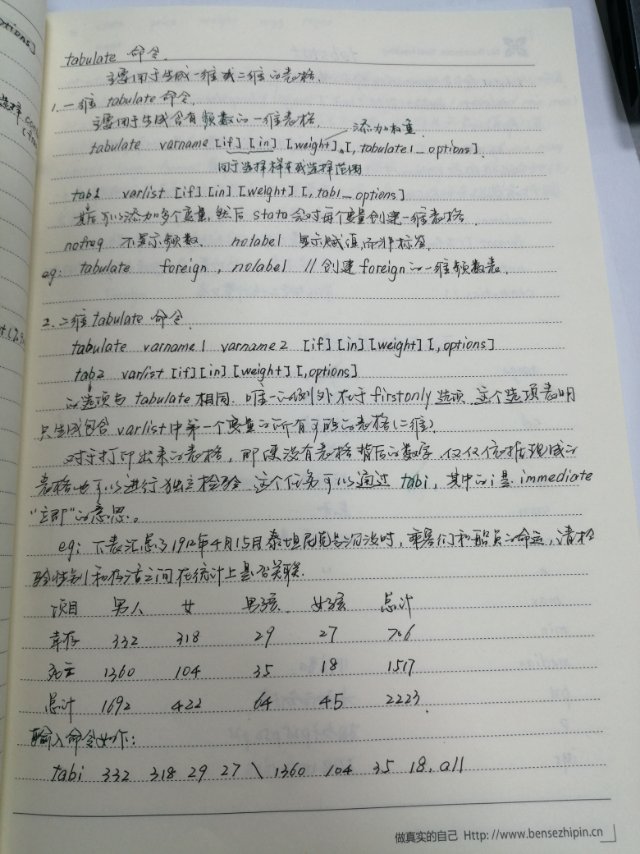 tabulate 命令.
主要用于生成一维或二维的表格.
1.一维 tabulate 命令.
主要用于生成含有频数的一维表格.
添加权重.
tabulate varname [if] [in] [weight] [, tabulate1_options].
用于选择样本或选择范围
tab1 varlist [if] [in] [weight] [, tab1_options]
其后可以添加多个变量,然后 stata 会对每个变量创建一维表格.
nofreq 不显示频数. nolabel 显示赋值而非标签.
eg: tabulate foreign, nolabel // 创建 foreign 的一维频数表.
2.二维 tabulate 命令.
tabulate varname1 varname2 [if] [in] [weight] [,options]
tab2 varlist [if] [in] [weight] [,options]
的选项与 tabulate 相同. 唯一的例外在于 firstonly 选项 这个选项表明
只生成包含 varlist 中第一个变量的所有可能的表格(二维).
对于打印出来的表格, 即便没有表格背后的数字 仅仅依据现成的
表格也可以进行独立检验 这个任务可以通过 tabi, 其中的 i 是 immediate
"立即"的意思。
eg: 下表汇总了1912年4月15日泰坦尼克号沉没时, 乘客们和船员的命运, 请检
验性别和存活之间在统计上是否关联.
项目 男人 女 男孩 女孩 总计
幸存 332 318 29 27 706
死亡 1360 104 35 18 1517
总计 1692 422 64 45 2223.
输入命令如下:
tabi 332 318 29 27 \ 1360 104 35 18, all
做真实的自己 Http://www.bensezhipin.cn